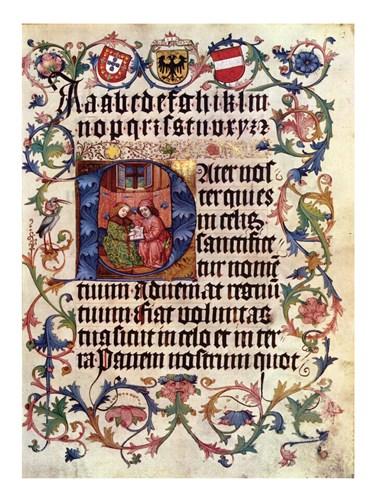 A a a b c d e f g h i k l m
n o p q r r s s t u v x y z z
Pater nos
ter qui es
in celis
sanctifice
tur nomē
tuum adveniat regnū
tuum fiat voluntas
tua sicut in celo et in ter
ra Panem nostrum quot